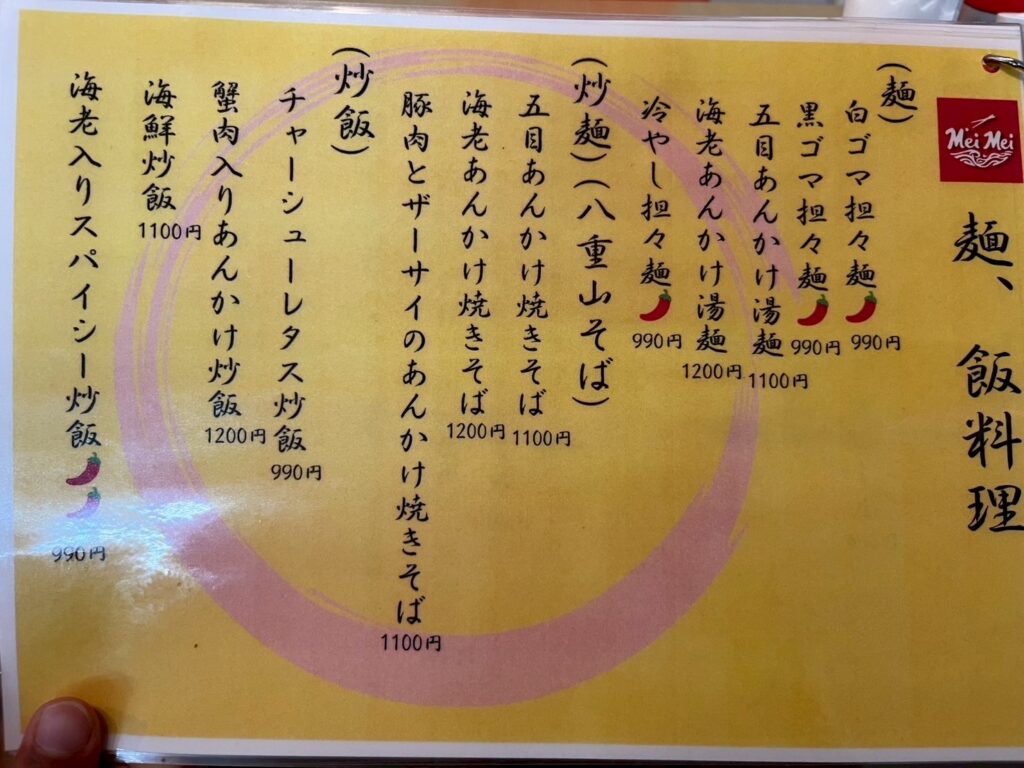 Mei Mei
麺、飯料理
(麺)
白ゴマ担々麺 990円
黒ゴマ担々麺 990円
五目あんかけ湯麺 1100円
海老あんかけ湯麺 1200円
冷やし担々麺 990円
(炒麺)(八重山そば)
五目あんかけ焼きそば 1100円
海老あんかけ焼きそば 1200円
豚肉とザーサイのあんかけ焼きそば 1100円
(炒飯)
チャーシューレタス炒飯 990円
蟹肉入りあんかけ炒飯 1200円
海鮮炒飯 1100円
海老入りスパイシー炒飯 990円